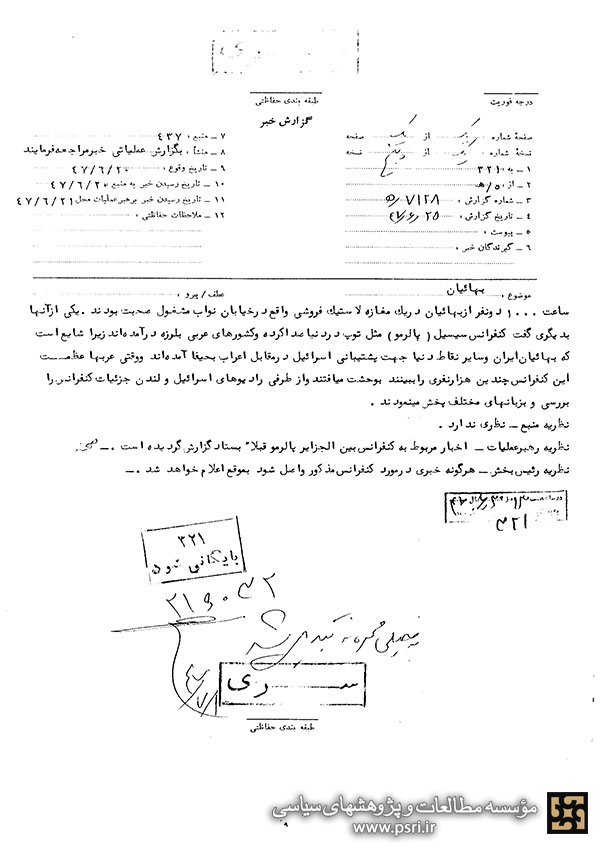 سری
طبقه بندی حفاظتی
درجه فوریت
گزارش خبر
صفحهٔ شماره یک از یک صفحه
نسخهٔ شماره یک از پنج نسخه
۱ ـ به ۳۲۱
۲ ـ از ۵/ه
۳ ـ شماره گزارش ، ۷۱۲۸/ه۵
۴ ـ تاریخ گزارش ، ۴۷/۶/۲۵
۵ ـ پیوست ،
۶ ـ گیرندگان خبر ،
۷ ـ منبع ، ۴۳۷
۸ ـ منشأ ، بگزارش عملیاتی خبرمراجعه فرمایند
۹ ـ تاریخ وقوع ، ۴۷/۶/۲۰
۱۰ ـ تاریخ رسیدن خبر به منبع ۴۷/۶/۲۰
۱۱ ـ تاریخ رسیدن خبر برهبرعملیات محل ۴۷/۶/۲۱
۱۲ ـ ملاحظات حفاظتی ،
موضوع ، بهائیان عطف / پیرو ،
ساعت ۱۰۰۰ دونفر ازبهائیان دریك مغازه لاستیك فروشی واقع درخیابان نواب مشغول صحبت بودند .یکی ازآنها
بدیگری گفت کنفرانس سیسیل ( پالرمو ) مثل توپ دردنیا صداکرده وکشورهای عربی بلرزه درآمده‌اند زیرا شایع است
که بهائیان‌ایران وسایر نقاط دنیا جهت پشتیبانی اسرائیل درمقابل اعراب بحیفا آمده‌اند ووقتی عربها عظمت
این کنفرانس چندین هزارنفری رابینند بوحشت میافتند واز طرفی رادیوهای اسرائیل و لندن جزئیات کنفرانس را
بررسی و بزبانهای مختلف پخش مینمودند .
نظریه منبع ـ نظری ندارد .
نظریه رهبرعملیات ـ اخبار مربوط به کنفرانس بین الجزایر پالرمو قبلا" بستاد گزارش گردیده است .ـ
نظریه رئیس بخش ـ هرگونه خبری درمورد کنفرانس مذکور واصل شود بموقع اعلام خواهد شد .ـ
۳۲۱
۳۲۱
بایگانی شود
۲۱۶۰۳۲
۴۷/۷/۱
سری
طبقه بندی حفاظتی
مؤسسه مطالعات و پژوهشهای سیاسی
www.psri.ir